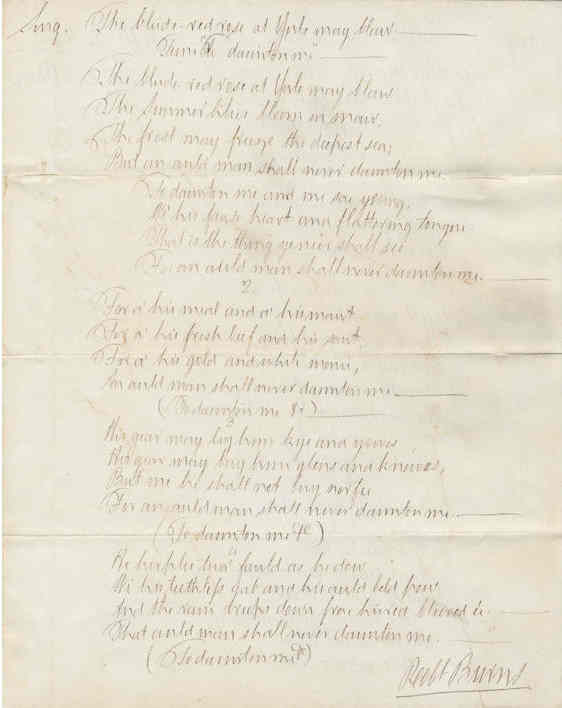 Song. The blude-red rose at Yule may blaw
Tune "To daunton me"
The blude red rose at Yule may blaw
The Summer lilies bloom in snaw.
The frost may freeze the deepest sea;
But an auld man shall never daunton me.
To daunton me and me sae young.
Wi his fause heart and flattering tongue
That is the thing ye ne'er shall see
For an auld man shall never daunton me.
2.
For a' his meal and a' his maut
For a' his fresh beef and his saut
For a' his gold and white monie,
An auld man shall never daunton me
(To daunton me &c)
3
His gear may buy him kye and yowes
His gear may buy him glens and knowes,
But me he shall not buy nor fee
For an auld man shall never daunton me.
(To daunton me &c)
4
He hirples twa fauld as he dow
Wi his teethless gab and his auld beld pow
And the rain dreeps down frae his red bleered ee.
That auld man shall never daunton me.
(To daunton me &c)
Robt Burns